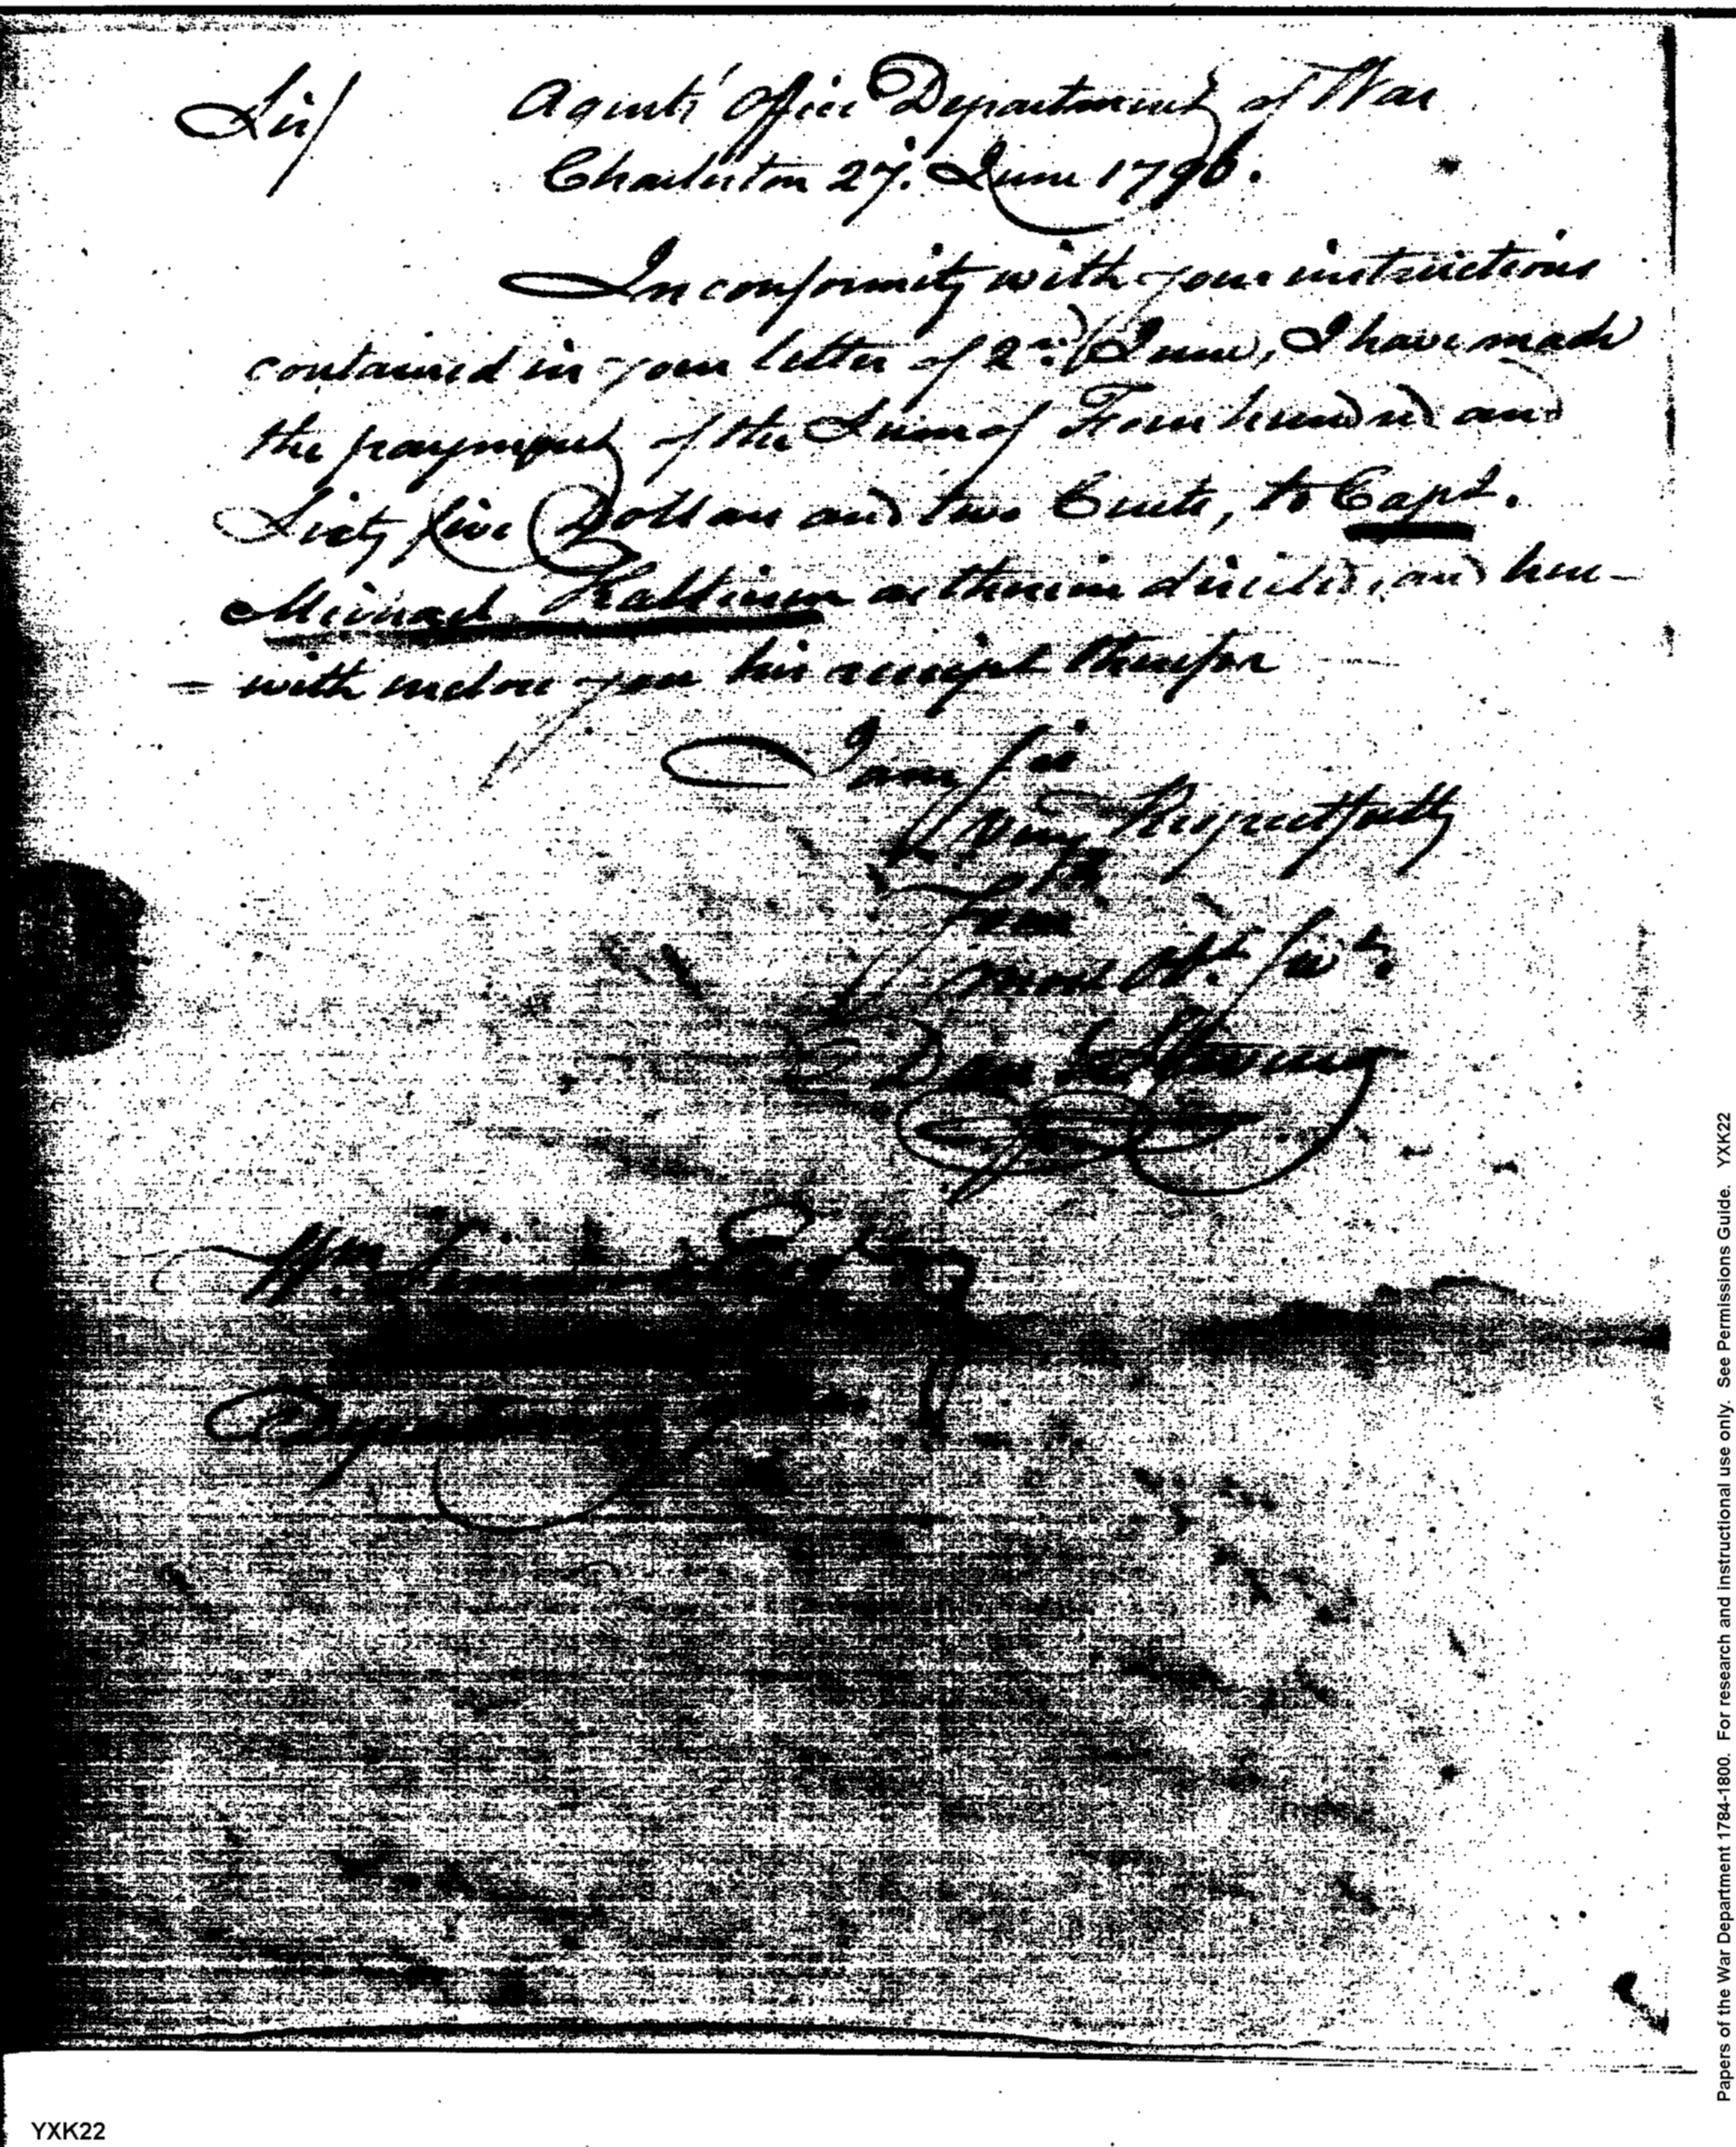 Sir/ Agents' Office Department of War
Charleston 27. June 1798.
In conformity with your instructions
contained in your letter of 2nd. June, I have made
the payment of the Sum of Four hundred and
Sixty five Dollars and two Cents, to Capt.
Michael Kaltieson as therein directed, and here-
- with inclose you his receipt therefor
I am Sir
Very Respectfully
Your
most Obt. Servt.
Dan Stevens
Wm. Simmons Esqr
Department of War
Papers of the War Department 1784-1800. For research and instructional use only. See Permissions Guide. YXK22
YXK22